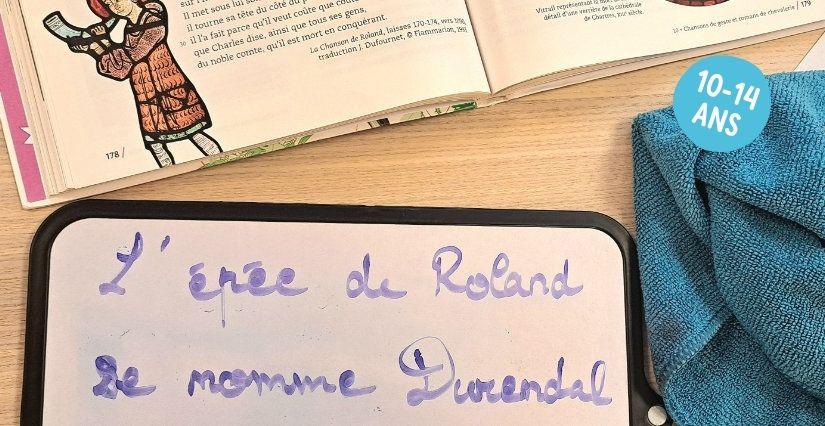 Il met sous lui so
il tourne sa tête du côté du p
30 il l'a fait parce qu'il veut coûte que coût
que Charles dise, ainsi que tous ses gens,
du noble comte, qu'il est mort en conquérant.
La Chanson de Roland, laisses 170-174, vers
traduction J. Dufournet, © Flammarion, 1993
178 /
Vitrail représentant
détail d'une verrière de la cathédrale
de Chartres, XIIIe siècle.
Chansons de geste et romans de chevalerie | 179
10-14
ANS
L'épée de Roland
se nomme Durendal